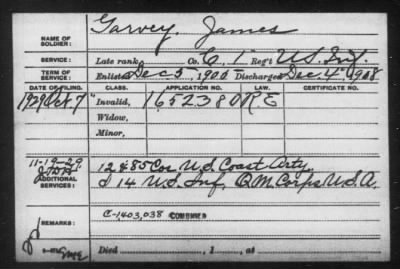 NAME OF SOLDIER: Garvey, James
SERVICE: Late rank, Co. C, 1" Reg't U.S. Inf.
TERM OF SERVICE: Enlisted Dec 5, 1905 Discharged Dec. 4, 1908
DATE OF FILING. CLASS. APPLICATION NO. LAW. CERTIFICATE NO.
1929 Oct 7 Invalid, 1652380 RE
Widow,
Minor,
11-19-29
ADDITIONAL SERVICES: 12 & 85 Cos U.S. Coast Arty.
& 14 U.S. Inf. Q.M. Corps U.S.A.
REMARKS: C-1,403,038 COMBINED
Died , 1 , at